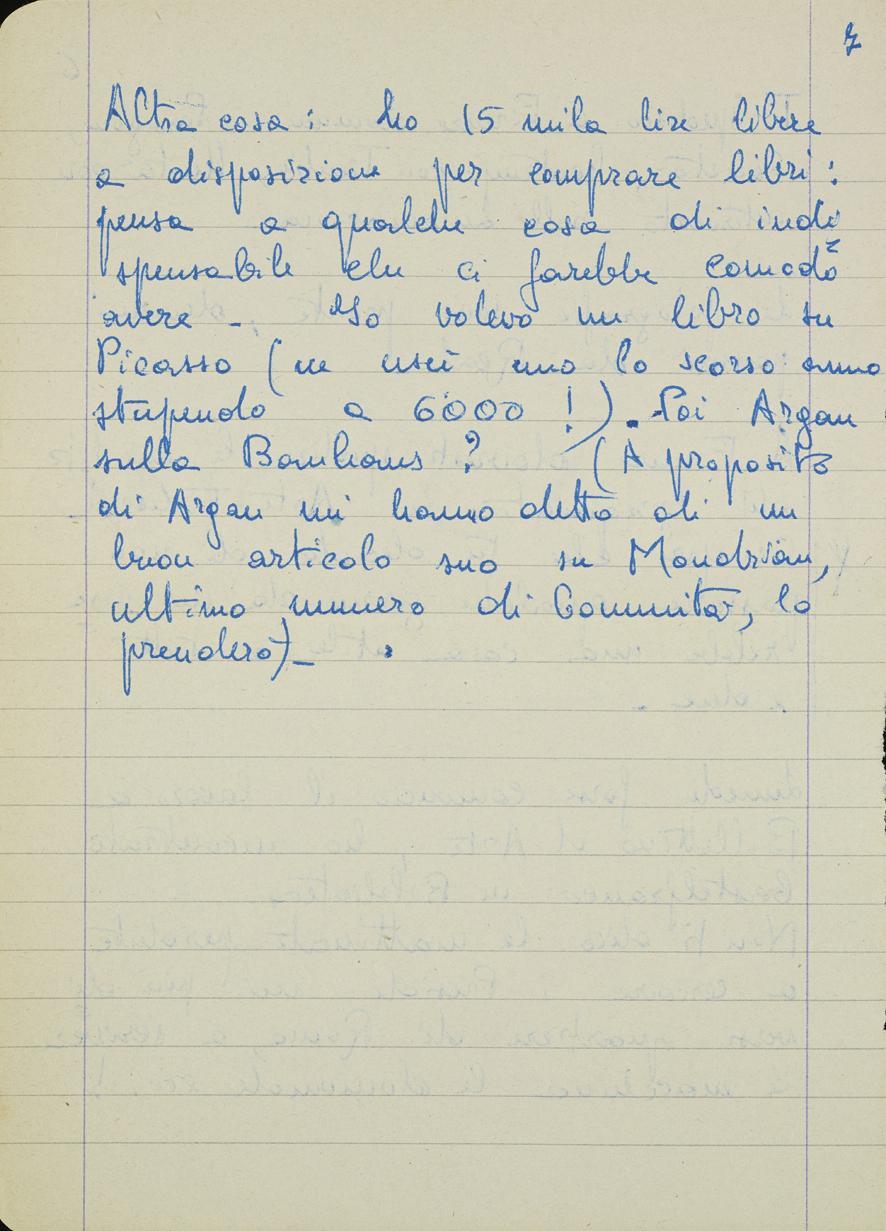 7
Altra cosa: ho 15 mila lire libere
a disposizione per comprare libri:
pensa a qualche cosa di indi
spensabile che ci farebbe comodo
avere - Io volevo un libro su
Picasso (ne uscì uno lo scorso anno
stupendo a 6000!). Poi Argan
sulla Bauhaus? (A proposito
di Argan mi hanno detto di un
buon articolo suo su Mondrian,
ultimo numero di Comunità, lo
prenderò) -